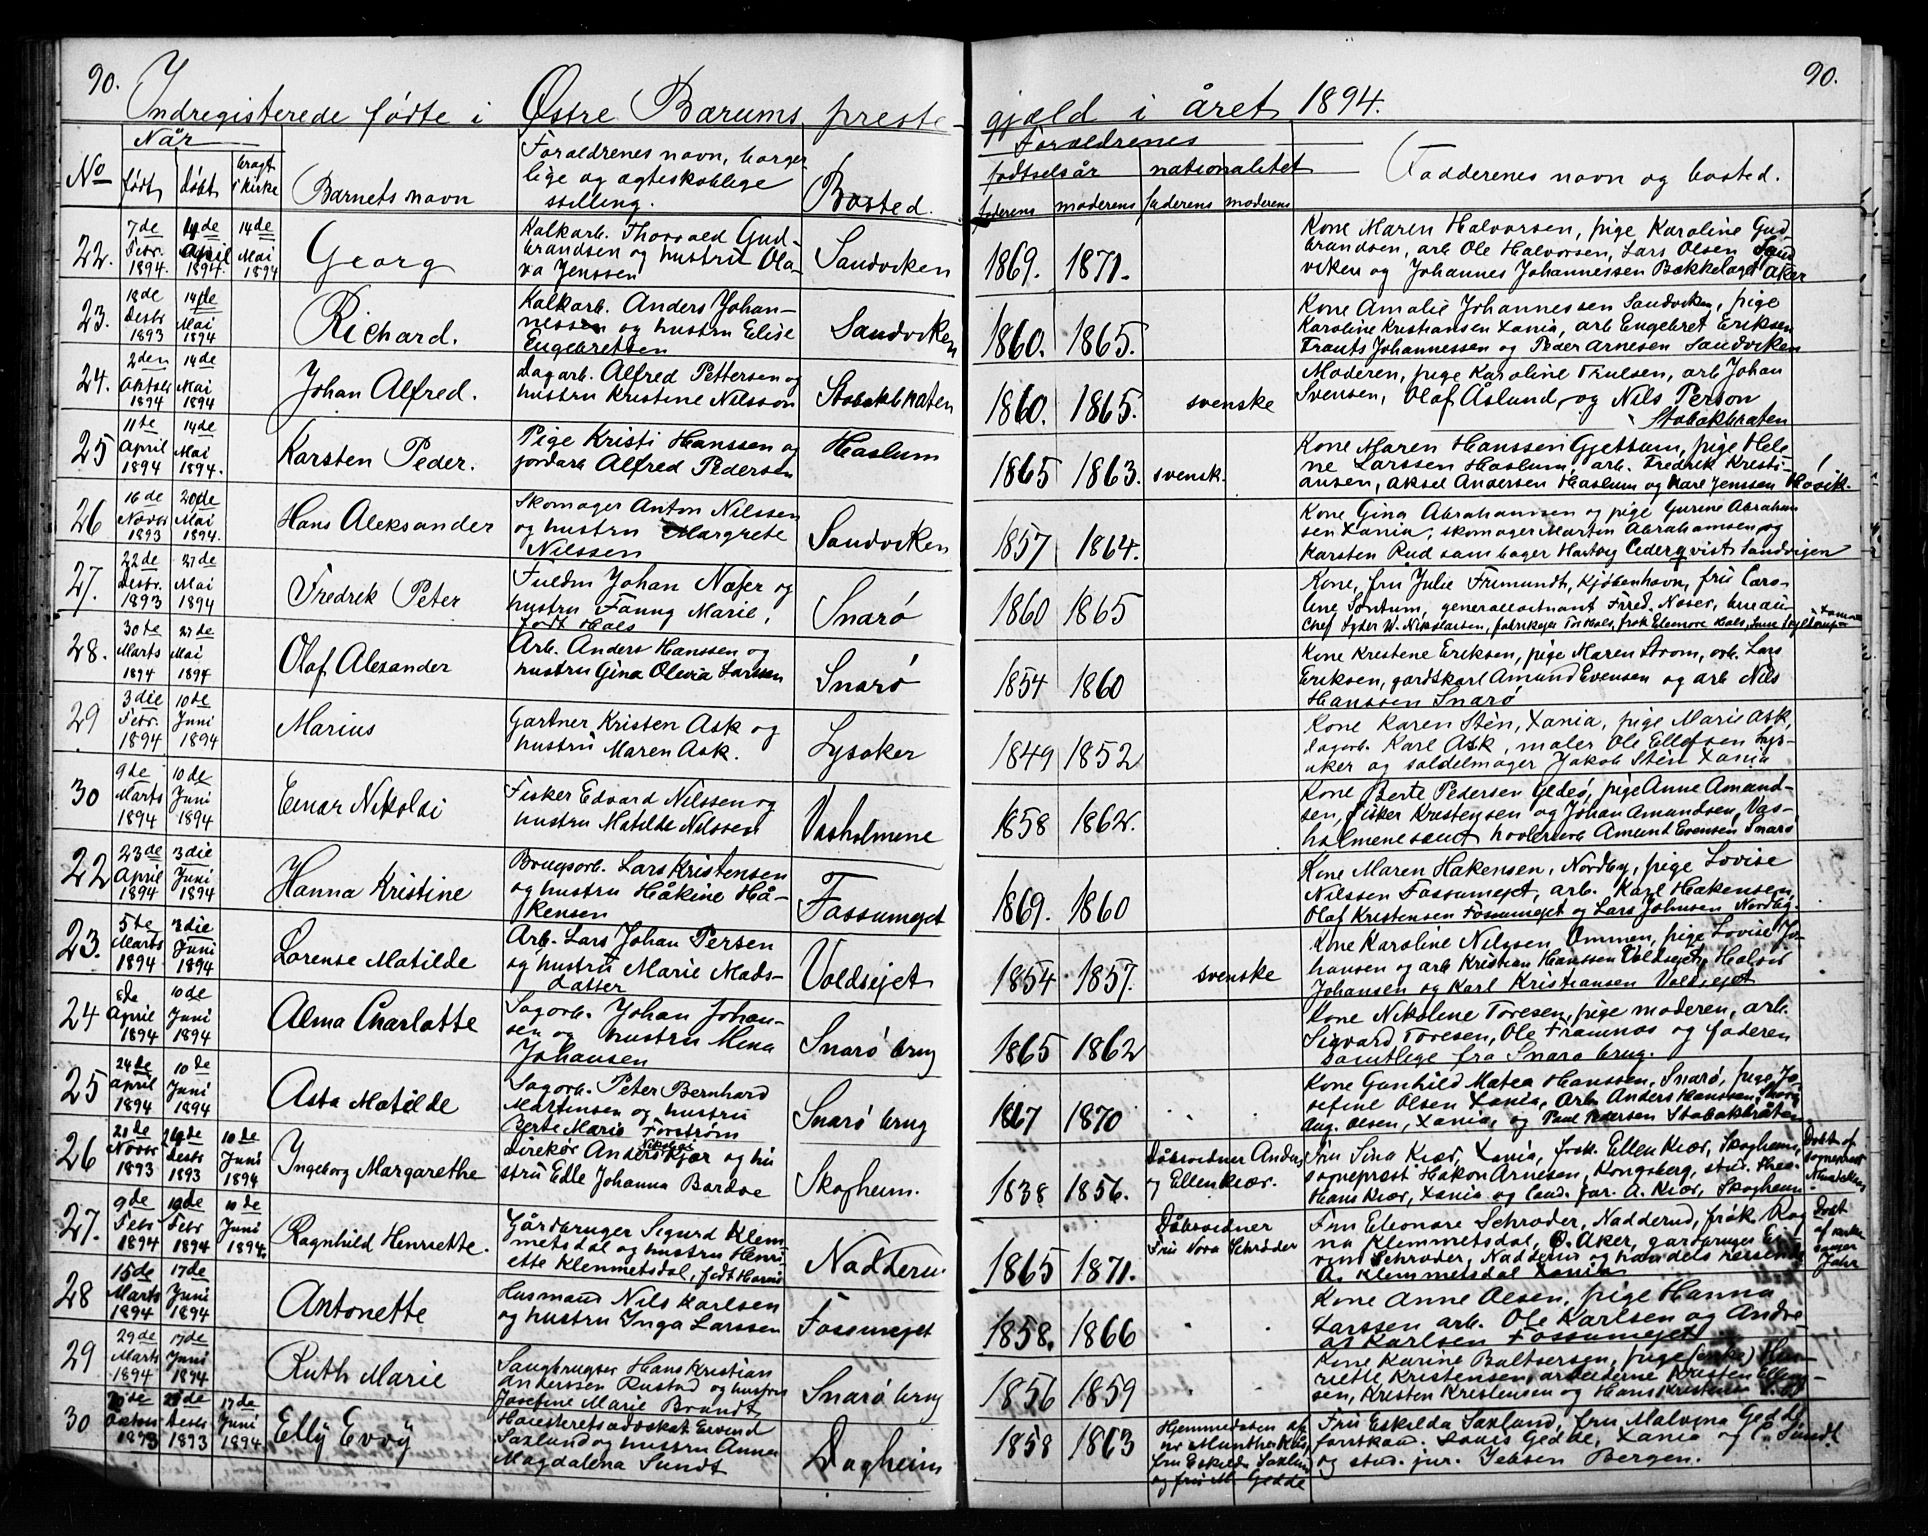 90.
90.
Indregisterede fødte i Østre Bærums preste-
gjæld i året 1894.
No
Når
født
døbt
bragt
i kirke
Barnets navn
Forældrenes navn, borger
lige og ægteskablige
stilling.
Bosted.
Forældrenes
fødselsår
nationalitet
faderens
moderens
faderens
moderens
Fadderenes navn og bosted.
22.
7de Febr. 1894.
April 1894.
14de Mai 1894
Georg
Kalkarb. Thorvald Gud-
brandsen og hustru Ola-
va Jenssen
Sandviken
1869. 1871.
Kone Maren Halvorsen, pige Karoline Gud
brandsen, arb Ole Halvorsen, Lars Olsen Sand
viken og Johannes Johannessen Bækkelaget Aker
23.
18de Desbr 1893
14de Mai 1894
Richard.
Kalkarb. Anders Johan-
nessen og hustru Elise
Engebretsen
Sandviken
1860. 1865.
Kone Amalie Johannessen Sandviken, pige
Karoline Kristiansen Xania, arb Engebret Eriksen
Frants Johannessen og Peder Arnesen Sandviken
24.
2den Oktob 1894
14de Mai 1894
Johan Alfred.
Dagarb. Alfred Pettersen og
hustru Kristine Nilsson
Stabækbraten
1860. 1865.
svenske
Moderen, pige Karoline Trulsen, arb Johan
Svensen, Olof Åslund og Nils Person
Stabækbraten
25
11te April 1894
14de Mai 1894.
Karsten Peder.
Pige Kristi Hanssen og
jordarb Alfred Pedersen
Haslum
1865 1863.
svensk.
Kone Maren Hanssen Gjettum, pige Hele
ne Larssen Haslum, arb. Fredrik Kristi-
ansen, Aksel Andersen Haslum og Karl Jenssen Høvik.
26
16de Novbr 1893
20de Mai 1894.
Hans Aleksander
Skomager Anton Nilssen
og hustru Margrete
Nilssen
Sandviken
1857 1864.
Kone Gina Abrahamsen og pige Gurine Abraham
sen Xania, skomager Martin Abrahamsen og
Karsten Rud samt bager Hartvig Cederqvist Sandvigen
27.
22de Desbr. 1893
27de Mai 1894
Fredrik Peter
Fuldm Johan Næser og
hustru Fanny Marie,
født Hals
Snarø
1860 1865
Kone, fru Julie Frimundt, Kjøbenhavn, fru Caro-
line Sontum, generalløitnant Fred. Næser, bureau-
28.
30te Marts 1894
27de Mai 1894
Olaf Alexander
Arb. Anders Hanssen og
hustru Gina Olivia Larssen
Snarø
1854 1860
Kone Kristene Eriksen, pige Maren Strøm, arb. Lars
Eriksen, gårdskarl Amund Evensen og arb Nils
Hanssen Snarø
29
3die Febr. 1894
10de Juni 1894
Marius
Gartner Kristen Ask og
hustru Maren Ask.
Lysaker
1849 1852
Kone Karen Stén, Xania, pige Marie Ask,
Dagarb. Karl Ask, maler Ole Ellefsen Lys-
aker og saldelmager Jakob Stén Xania
30
9de Marts 1894
10de Juni 1894
Einar Nikolai
Fisker Edvard Nilssen og
hustru Matilde Nilssen
Vasholmene
1858 1862.
Kone Berte Pedersen Gedeø, pige Anne Amund-
sen, Fisker Kristensen og Johan Amundsen, Vas-
holmene samt hovleriarb Amund Evensen Snarø
22
23de April 1894
3die Juni 1894
Hanna Kristine
Brugsarb. Lars Kristensen
og hustru Håkine Hå-
kensen
Fossumejet
1869. 1860
Kone Maren Håkensen, Nordby, pige Lovise
Nilssen Fossumejet, arb. Karl Håkensen,
Olaf Kristensen Fossumejet og Lars Johnsen Nordby.
23.
5te Marts 1894
3die Juni 1894
Lorense Matilde
Arb. Lars Johan Persen
og hustru Marie Mads-
datter
Voldsejet
1854 1857.
svenske
Kone Karoline Nilssen Ommen, pige Lovise Jo-
hansen og arb Kristian Hanssen Voldsejet, Halvor
Johansen og Karl Kristiansen Voldsejet
24
8de April 1894
10de Juni 1894
Alma Charlotte
Sagarb. Johan Johan-
sen og hustru Mina
Johansen
Snarø brug
1865 1862
Kone Nikoline Toresen, pige moderen, arb.
Sigvard Toresen, Ole Framnæs og faderen
Samtlige fra Snarø brug.
25
24de April 1894
10de Juni 1894
Asta Matilde
Sagarb. Peter Bernhard
Martinsen og hustru
Berte Marie Forstrøm
Snarø brug
1867 1870
Kone Gunhild Matea Hanssen, Snarø, pige Jo-
sefine Olsen Xania, Arb Anders Hanssen,
Aug. Olsen, Xania, og Paul Pedersen Stabækbråten
26
21de Novbr 1893
Desbr 1893
10de Juni 1894
Ingeborg Margarethe
Direkør Anders Nikolai Kjær og hu
stru Edle Johanna Bardoe
Skogheim.
1838 1856.
Døbsvidner Anders
og Ellen Kiær.
Fru Sina Kiær, Xania, frøk. Ellen Kiær, Skogheim,
sogneprest Håkon Arnesen, Kongsberg, stud. theo.
Hans Kiær, Xania og Cand. far. A. Kiær, Skogheim
Døbt af
sogneprest
27.
9de Febr 1894
Febr 1894
10de Juni 1894.
Ragnhild Henriette.
Gårdbruger Sigurd Klem
metsdal og hustru Henri
ette Klemmetsdal, født Harris
Nadderu
1865 1871.
Døbsvidner
Fru Nora Schrøder
Fru Eleonore Schrøder, Nadderud, frøk. Rag
na Klemmetsdal, Ø. Aker, gårdbruger Ei
vind Schrøder, Nadderud og handelsreisende
A. Klemmetsdal Xania
Døbt
af
Jahr
28
15de Marts 1894
17de Juni 1894
Antonette
Husmand Nils Karlsen
og hustru Inga Larssen
Fossumejet
1858. 1866
Kone Anne Olsen, pige Hanna
Larssen arb. Ole Karlsen og Andre
as Karlsen Fossumejet
29
29de Marts 1894
17de Juni 1894
Ruth Marie
Saugbruger Hans Kristian
Anderssen Rustad og hustru
Josefine Marie Brandt
Snarø brug
1856 1859
Kone Karine Baltsersen, pige (enke) Hen-
riette Kristensen, arbeiderne Kristen Ellin-
sen, Kristen Kristensen og Hans Kristensen
30
Oktbr 1893
Desbr 1893
17de Juni 1894
Elly Evøy
Høiesteretsadvokat Eivind
Saxlund og hustru Anna
Magdalena Sundt
Dagheim
1858 1863
Hjemmedøbte af
fru Eskilda Saxlund
og fru M. Gedde
Fru Eskilda Saxlund, fru Malvina Gedde,
forstkand. Louis Gedde, Xania og C. Sundt
og stud. jur. Jebsen Bergen.